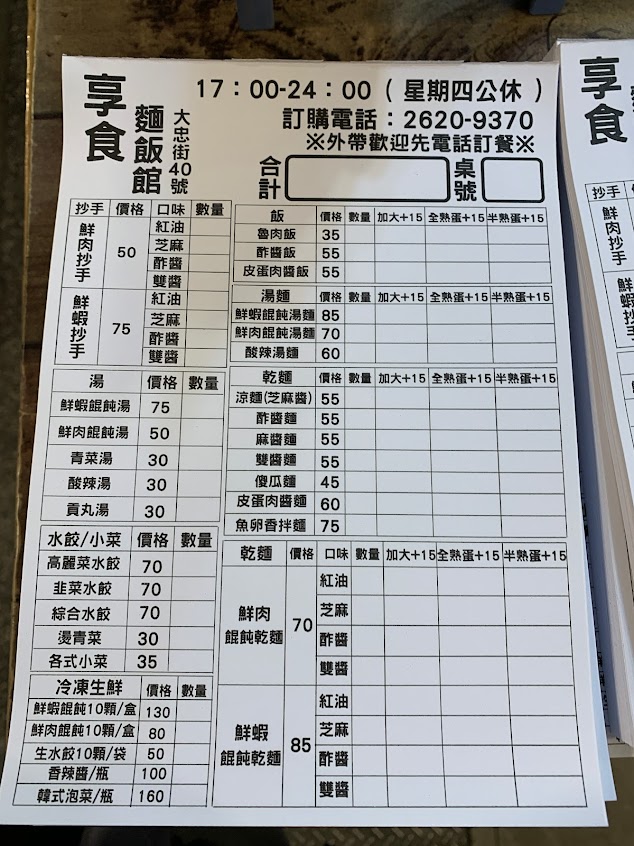 享食
麵飯館
大忠街40號
17：00-24：00（星期四公休）
訂購電話：2620-9370
※外帶歡迎先電話訂餐※
合計
桌號
抄手 價格 口味 數量
鮮肉抄手 50 紅油
芝麻
酢醬
雙醬
鮮蝦抄手 75 紅油
芝麻
酢醬
雙醬
湯 價格 數量
鮮蝦餛飩湯 75
鮮肉餛飩湯 50
青菜湯 30
酸辣湯 30
貢丸湯 30
水餃/小菜 價格 數量
高麗菜水餃 70
韭菜水餃 70
綜合水餃 70
燙青菜 30
各式小菜 35
冷凍生鮮 價格 數量
鮮蝦餛飩10顆/盒 130
鮮肉餛飩10顆/盒 80
生水餃10顆/袋 50
香辣醬/瓶 100
韓式泡菜/瓶 160
飯 價格 數量 加大+15 全熟蛋+15 半熟蛋+15
魯肉飯 35
酢醬飯 55
皮蛋肉醬飯 55
湯麵 價格 數量 加大+15 全熟蛋+15 半熟蛋+15
鮮蝦餛飩湯麵 85
鮮肉餛飩湯麵 70
酸辣湯麵 60
乾麵 價格 數量 加大+15 全熟蛋+15 半熟蛋+15
涼麵(芝麻醬) 55
酢醬麵 55
麻醬麵 55
雙醬麵 55
傻瓜麵 45
皮蛋肉醬麵 60
魚卵香拌麵 75
乾麵 價格 口味 數量 加大+15 全熟蛋+15 半熟蛋+15
鮮肉餛飩乾麵 70 紅油
芝麻
酢醬
雙醬
鮮蝦餛飩乾麵 85 紅油
芝麻
酢醬
雙醬
享食
抄手 價
鮮肉抄手
鮮蝦